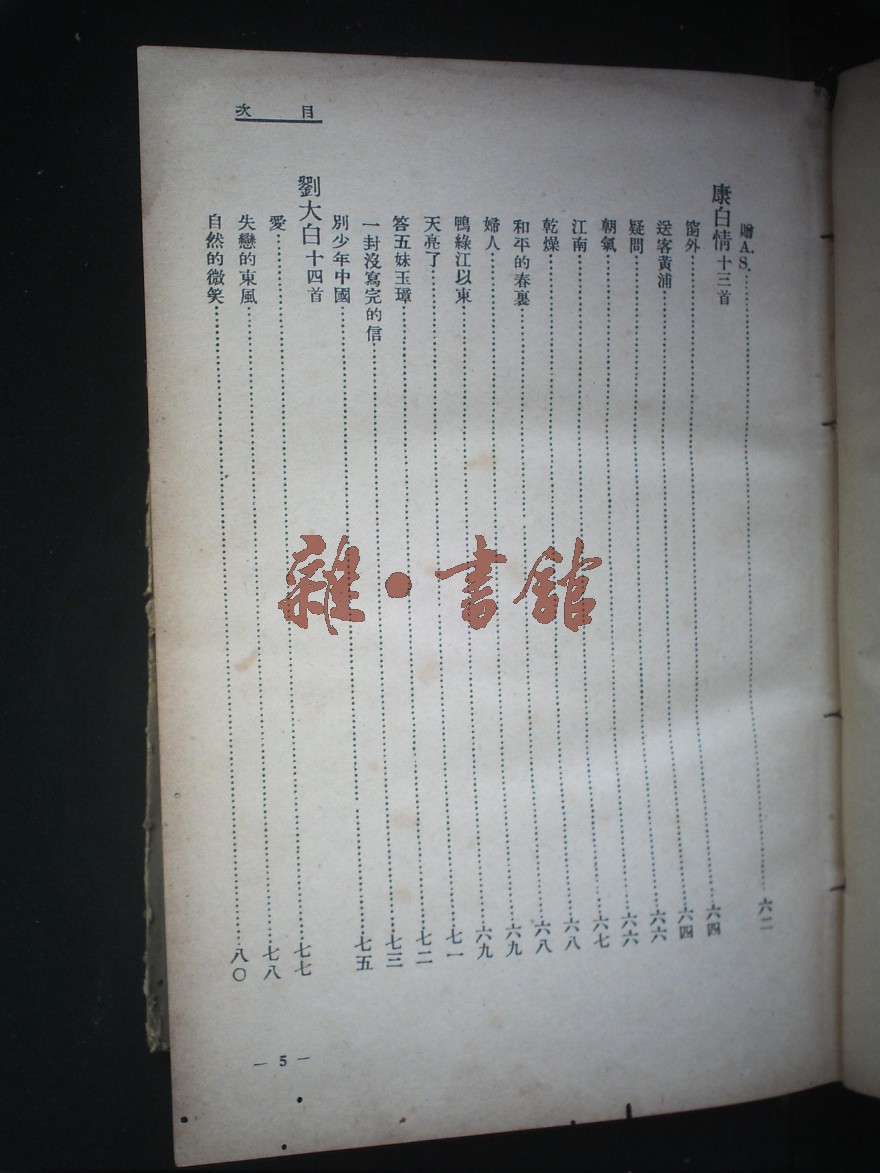 目次
贈A.S.……六二
康白情十三首
窗外……六四
送客黃浦……六四
疑問……六六
朝氣……六六
江南……六七
乾燥……六八
和平的春裏……六八
婦人……六九
鴨綠江以東……六九
天亮了……七一
答五妹玉璋……七二
一封沒寫完的信……七三
別少年中國……七五
劉大白十四首
愛……七七
失戀的東風……七八
自然的微笑……八〇
— 5 —
雜·書館